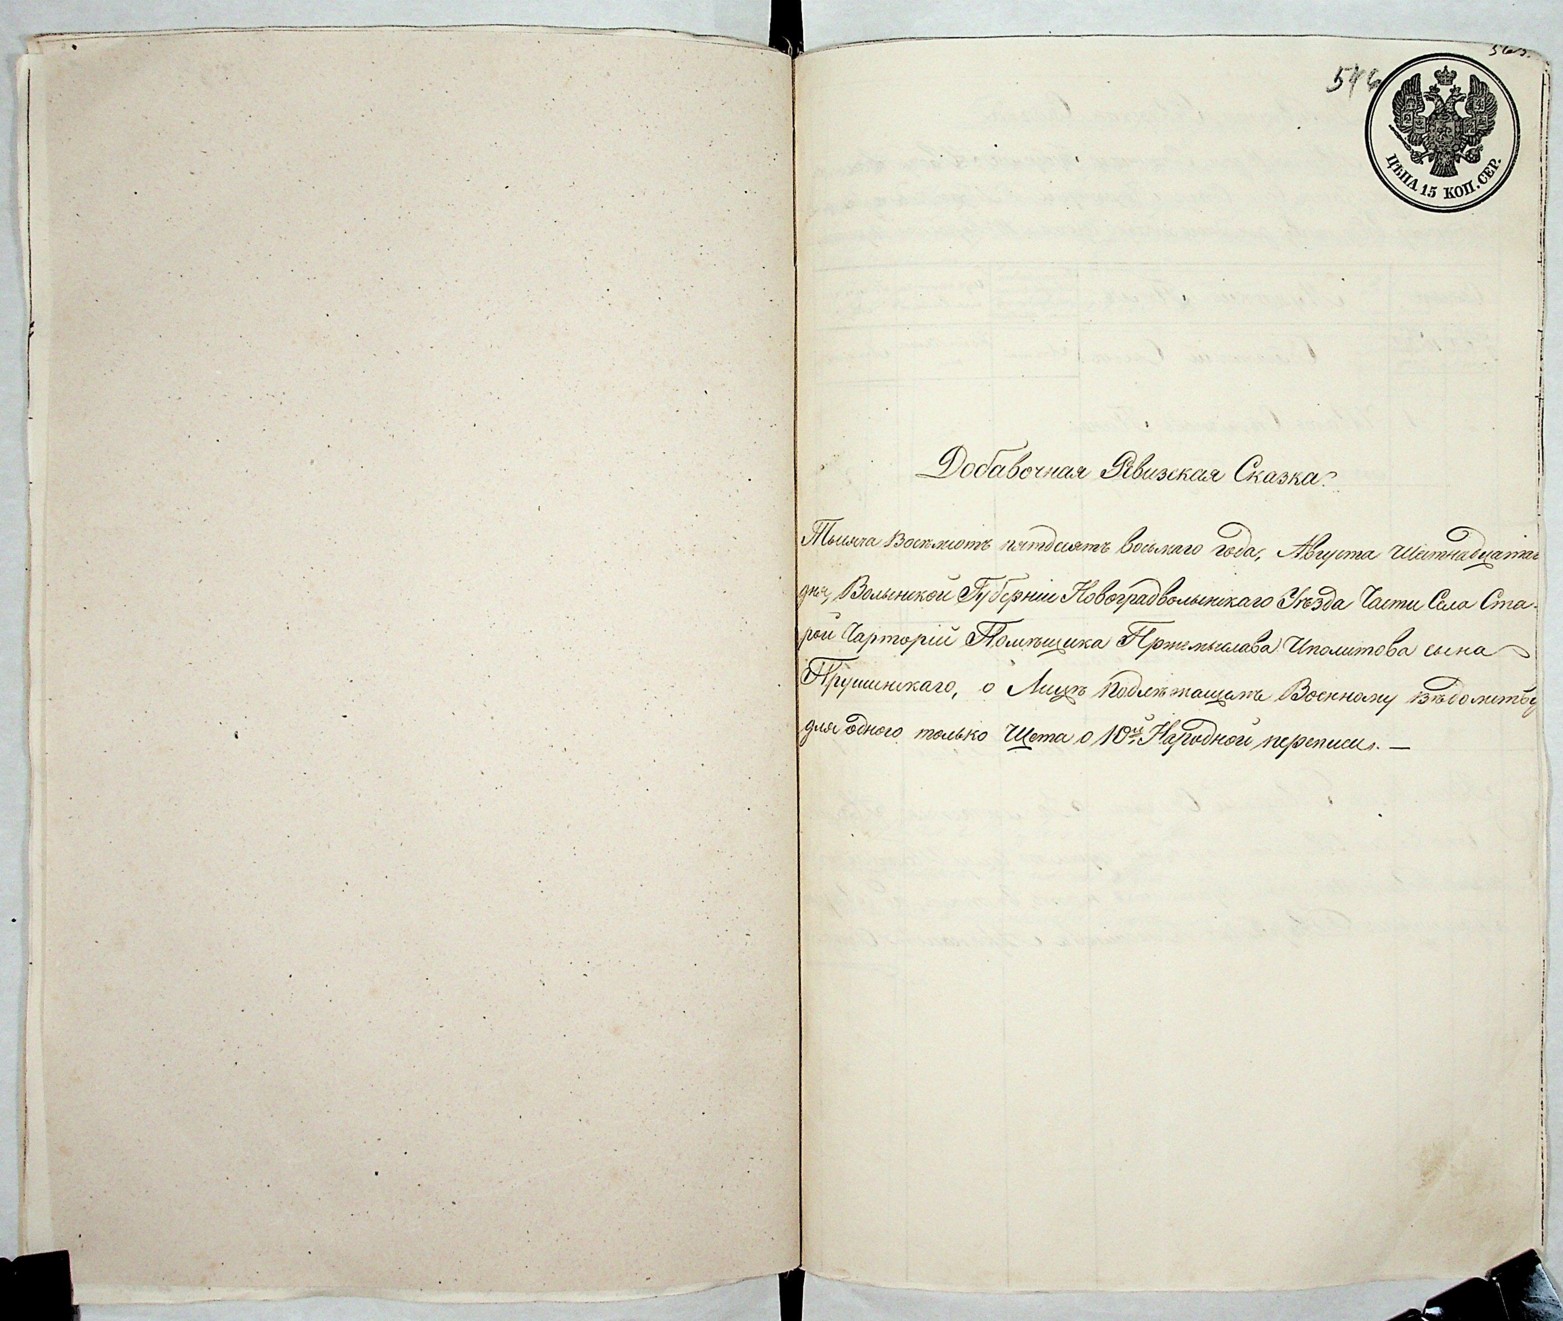 546
ЦѢНА 15 КОП. СЕР.
Добавочная Ревизская Сказка.
Тысяча Восемсотъ пятдесятъ восьмаго года, Августа Шестнадцатаго
дня, Волынской Губерніи Новоградволынскаго Уѣзда Части Села Ста-
рой Чарторіи Помѣщика Пржемыслава Иполитова сына
Прушинскаго, о Лицѣ подлѣжащемъ Военному вѣдомству
для одного только Щета о 10й Народной переписи. —